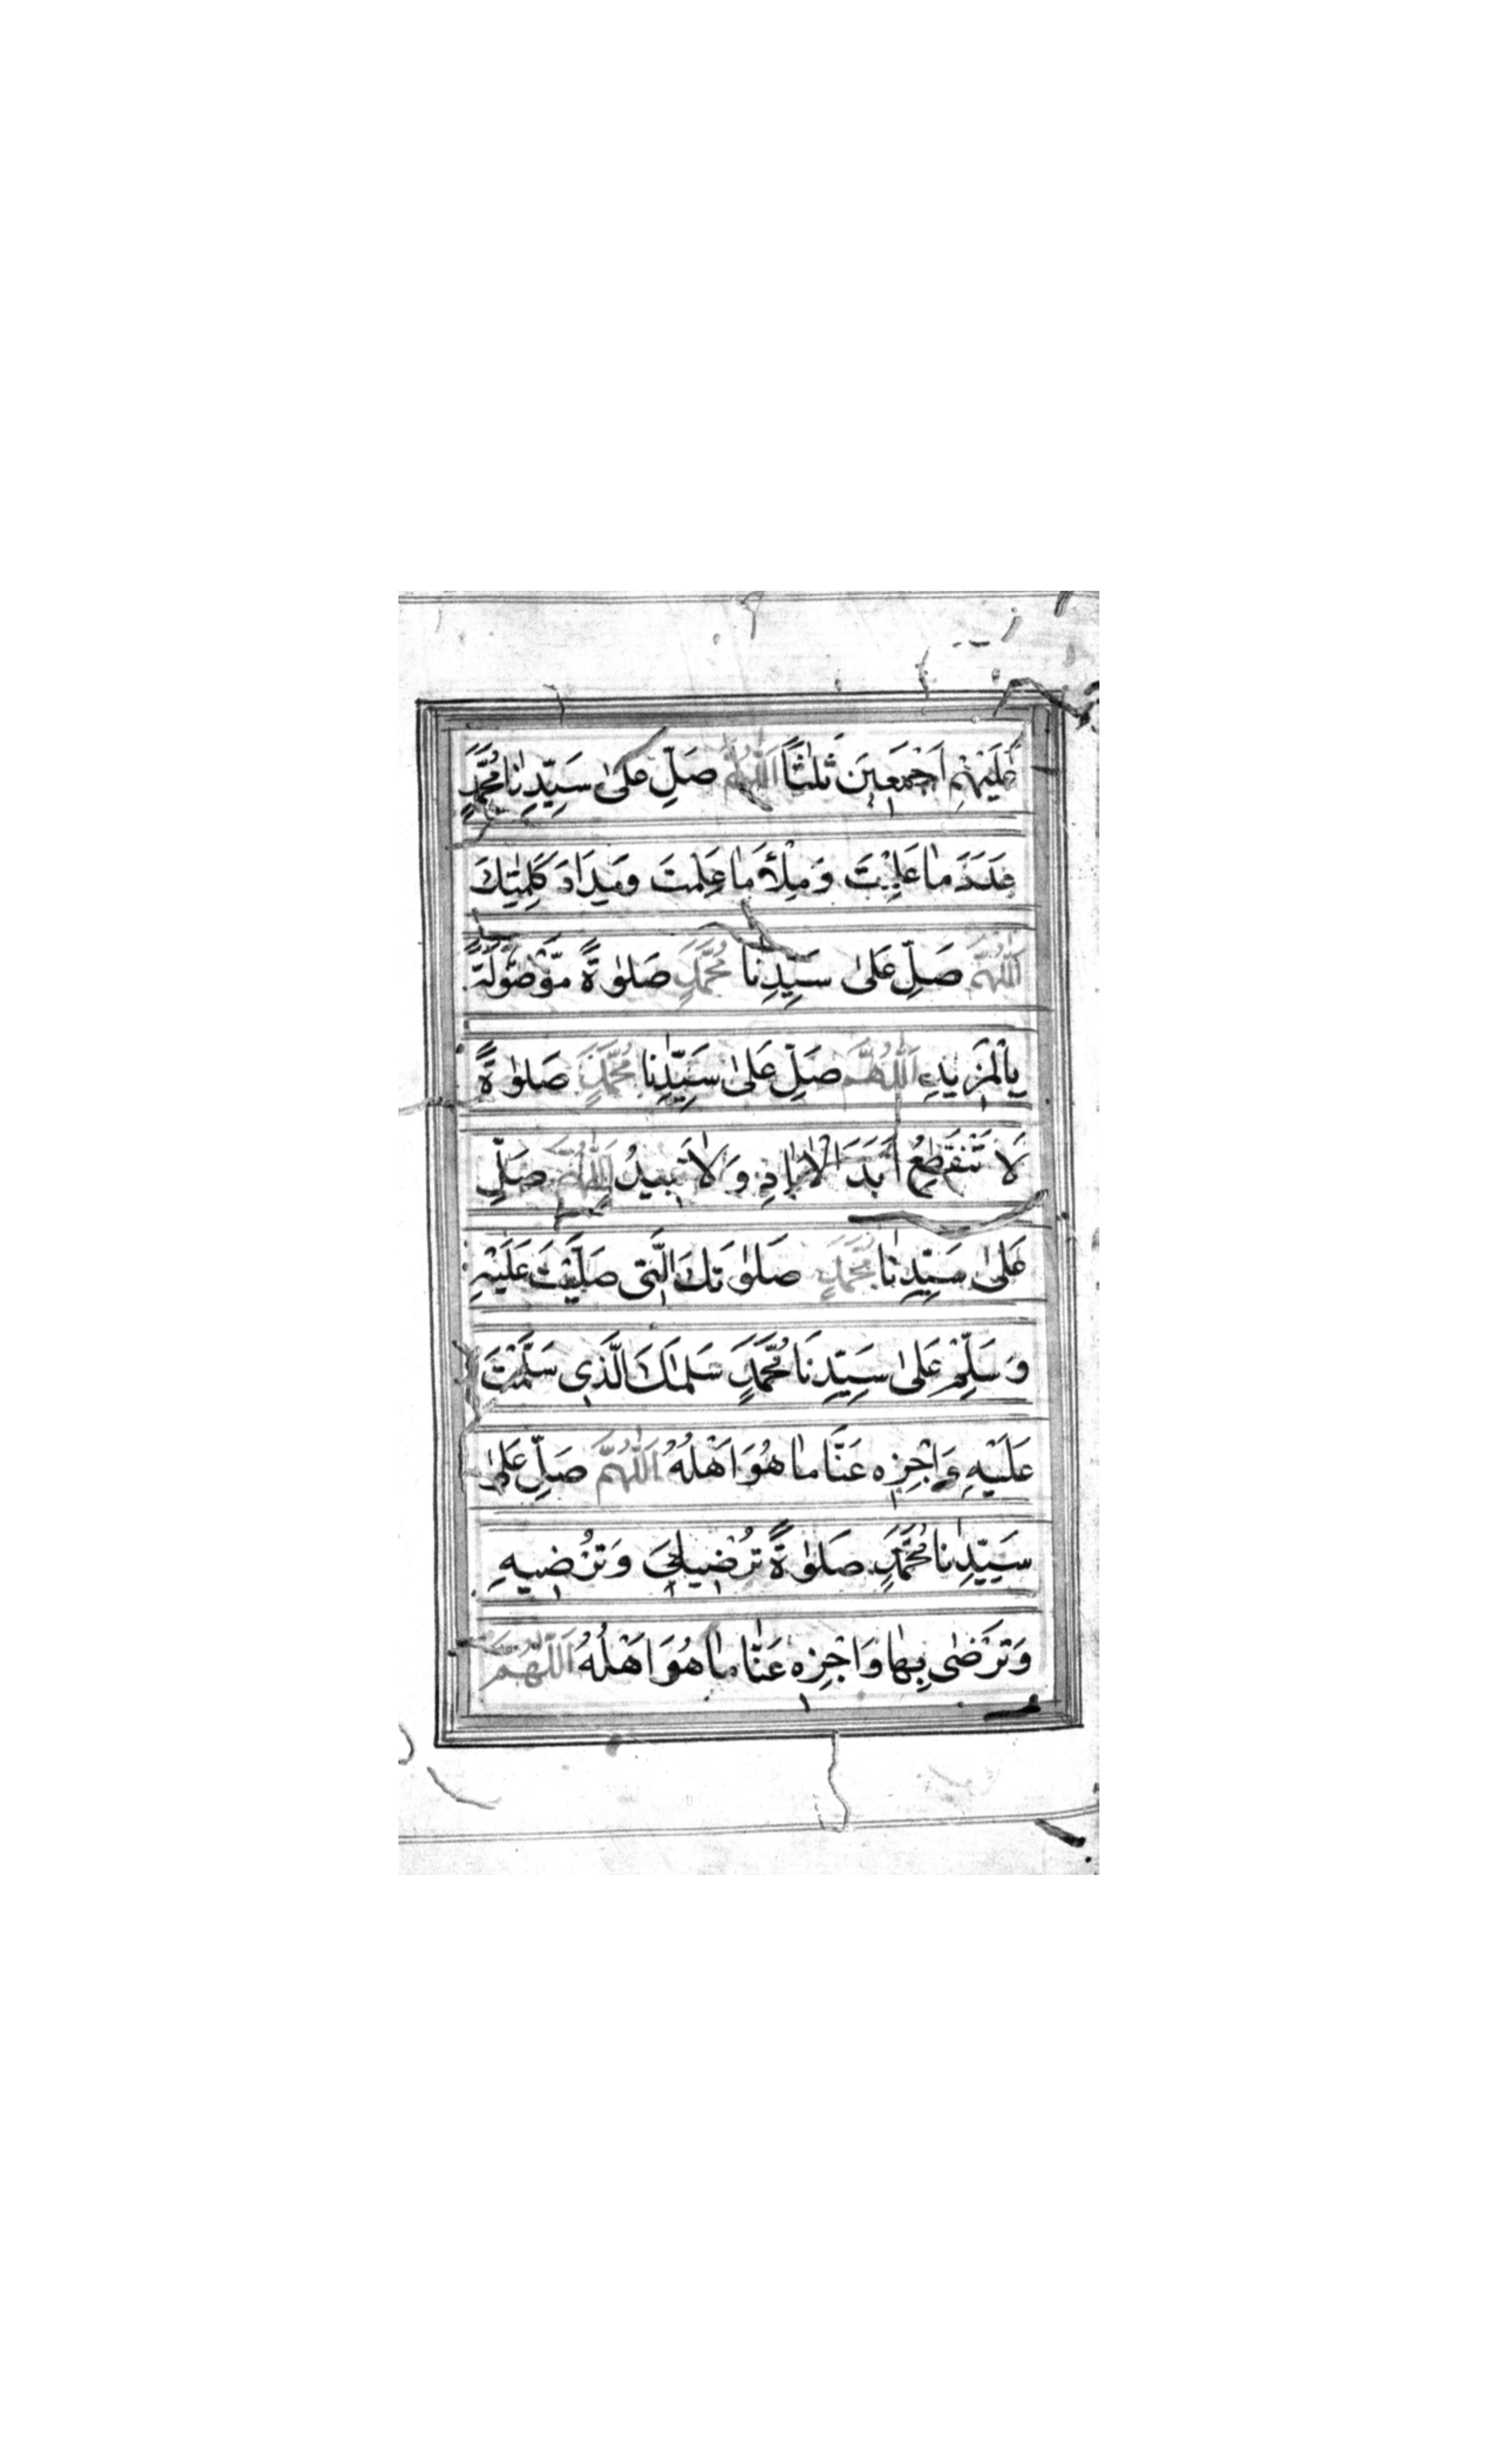 عَلَيْهِمْ اَجْمَعِينَ ثَلٰثًا اَللّٰهُمَّ صَلِّ عَلٰى سَيِّدِنَا مُحَمَّدٍ
عَدَدَ مَا عَلِمْتَ وَمِلْأَ مَا عَلِمْتَ وَمِدَادَ كَلِمٰتِكَ
اَللّٰهُمَّ صَلِّ عَلٰى سَيِّدِنَا مُحَمَّدٍ صَلٰوةً مَّوْصُولَةً
بِالْمَزِيدِ اَللّٰهُمَّ صَلِّ عَلٰى سَيِّدِنَا مُحَمَّدٍ صَلٰوةً
لَا تَنْقَطِعُ اَبَدَ الْاٰبَادِ وَلَا تَبِيدُ اَللّٰهُمَّ صَلِّ
عَلٰى سَيِّدِنَا مُحَمَّدٍ صَلٰوتَكَ الَّتِى صَلَّيْتَ عَلَيْهِ
وَسَلِّمْ عَلٰى سَيِّدِنَا مُحَمَّدٍ سَلٰمَكَ الَّذِى سَلَّمْتَ
عَلَيْهِ وَاجْزِهِ عَنَّا مَا هُوَ اَهْلُهُ اَللّٰهُمَّ صَلِّ عَلٰى
سَيِّدِنَا مُحَمَّدٍ صَلٰوةً تُرْضِيكَ وَتُرْضِيهِ
وَتَرْضٰى بِهَا وَاجْزِهِ عَنَّا مَا هُوَ اَهْلُهُ اَللّٰهُمَّ